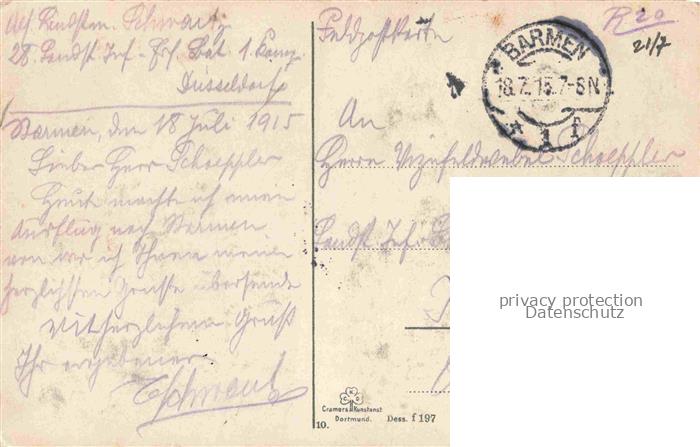 Abs. Landstm. Schwarz
28. Landst. Inf. Ers. Bat. 1. Komp.
Düsseldorf
Barmen, den 18 Juli 1915
Lieber Herr Schoeppler
Heute machte ich einen
Ausflug nach Barmen
von wo ich Ihnen meine
herzlichsten Grüsse übersende
Mit herzlichem Gruß
Ihr ergebener
Schwarz
Feldpostkarte
R 20
21/7
BARMEN
18.7.15.7-8N
* 1 f
An
Herrn Vizefeldwebel Schoeppler
Landst. Inf.
privacy protection
Datenschutz
C K D
Cramers Kunstanst.
Dortmund.
10.
Dess. f 197